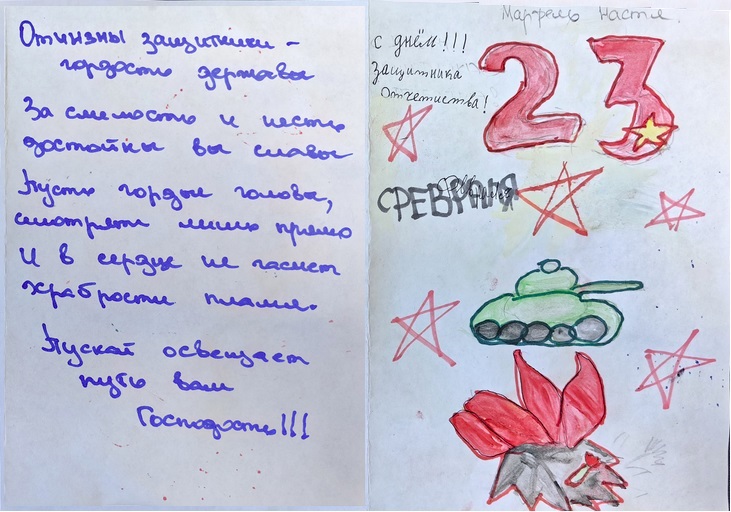 Отчизны защитники –
гордость державы
За смелость и честь
достойны вы славы
Пусть гордые головы,
смотрят лишь прямо
И в сердце не гаснет
храбрости пламя.
Пускай освещает
путь вам
Господь!!!
Настя
с днём!!!
Защитника
Отчетиства!
23
СРЕВРАЛЯ